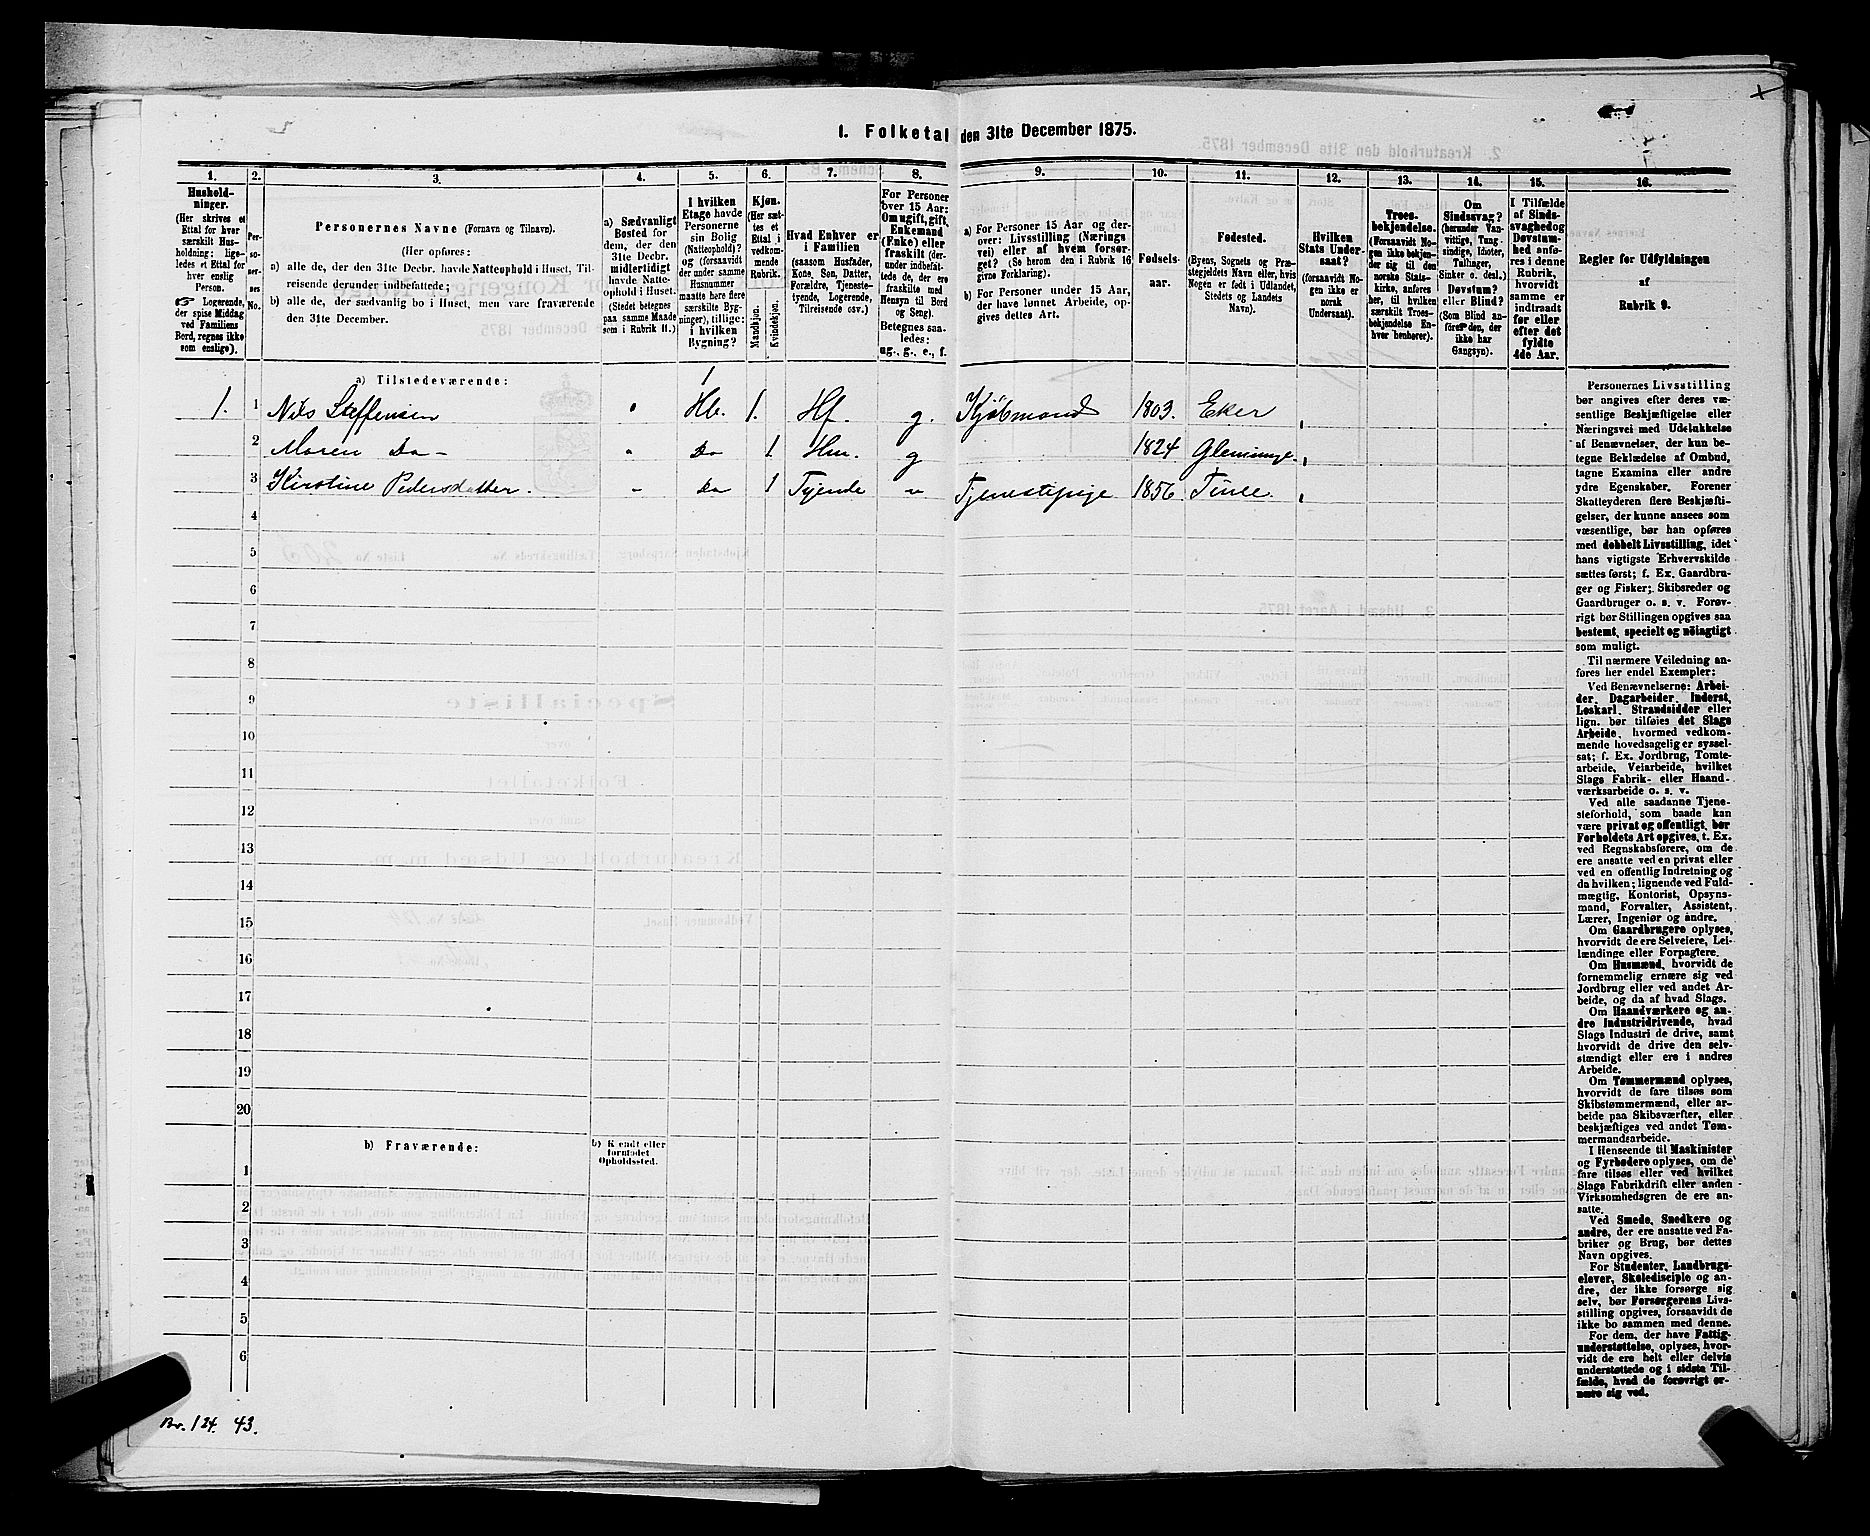 1. Folketal den 31te December 1875.
1. 2. 3. 4. 5. 6. 7. 8. 9. 10. 11. 12. 13. 14. 15. 16.
Hushold-
ninger.
(Her skrives et
Ettal for hver
særskilt Hus-
holdning; lige-
ledes et Ettal for
hver enslig
Person.
☞ Logerende,
der spise Middag
ved Familiens
Bord, regnes ikke
som enslige).
Per-
soner-
nes
No.
Personernes Navne (Fornavn og Tilnavn).
(Her opføres:
a) alle de, der den 31te Decbr. havde Natteophold i Huset, Til-
reisende derunder indbefattede;
b) alle de, der sædvanlig bo i Huset, men vare fraværende
den 31te December.
a) Sædvanligt
Bosted for
dem, der den
31te Decbr.
midlertidigt
havde Natte-
ophold i Huset.
(Stedet betegnes
paa samme Maade
som i Rubrik 11.)
I hvilken
Etage havde
Personerne
sin Bolig
(Natteophold)?
og (forsaavidt
der under samme
Husnummer
maatte høre flere
særskilte Byg-
ninger), tillige:
i hvilken
Bygning?
Kjøn.
(Her sæt-
tes et
Ettal i
vedkom-
mende
Rubrik.
Mandkjøn.
Kvindekjøn.
Hvad Enhver er
i Familien
(saasom Husfader,
Kone, Søn, Datter,
Forældre, Tjeneste-
tyende, Logerende,
Tilreisende osv.)
For Personer
over 15 Aar:
Om ugift, gift,
Enkemand
(Enke) eller
fraskilt (der-
under indbefat-
tede de, der ere
fraskilte med
Hensyn til Bord
og Seng).
Betegnes saa-
ledes:
ug., g., e., f.
a) For Personer 15 Aar og der-
over: Livsstilling (Nærings
vei) eller af hvem forsør-
get? (Se herom den i Rubrik 16
givne Forklaring).
b) For Personer under 15 Aar,
der have lønnet Arbeide, op-
gives dettes Art.
Fødsels-
aar.
Fødested.
(Byens, Sognets og Præ-
stegjeldets Navn eller, hvis
Nogen er født i Udlandet,
Stedets og Landets
Navn).
Hvilken
Stats Under-
saat?
(forsaavidt No-
gen ikke er
norsk
Undersaat).
Troes-
bekjendelse.
(Forsaavidt No-
gen ikke bekjen-
der sig til den
norske Stats-
kirke, anføres
her, til hvilken
særskilt Troes-
bekjendelse En-
hver henhører).
Om
Sindssvag?
(herunder Van-
vittige, Tung-
sindige, Idioter,
Tullinger,
Sinker o. desl.)
Døvstum?
eller Blind?
(Som Blind an-
føres den, der
ikke har
Gangsyn).
I Tilfælde
af Sinds-
svaghed og
Døvstum-
hed anfø-
res i denne
Rubrik,
hvorvidt
samme er
indtraadt
før eller
efter det
fyldte
4de Aar.
Regler for Udfyldningen
af
Rubrik 9.
a) Tilstedeværende:
1
1. 1 Nils Steffensen Hb. 1. Hf. g. Kjøbmand 1803. Eker
2 Maren Do Do 1 Hm. g 1824 Glemminge.
3 Kirstine Pedersdatter. Do 1 Tyende Tjenestepige 1856
4
5
6
7
8
9
10
11
12
13
14
15
16
17
18
19
20
b) Fraværende:
b) Kjendt eller
formodet
Opholdssted.
1
2
3
4
5
6
Personernes Livsstilling
bør angives efter deres væ-
sentlige Beskjæftigelse eller
Næringsvei med Udelukkelse
af Benævnelser, der kun be-
tegne Beklædelse af Ombud,
tagne Examina eller andre
ydre Egenskaber. Forener
Skatteyderen flere Beskjæfti-
gelser, der kunne ansees som
væsentlige, bør han opføres
med dobbelt Livsstilling, idet
hans vigtigste Erhvervskilde
sættes først; f. Ex. Gaardbru-
ger og Fisker; Skibsreder og
Gaardbruger o. s. v. Forøv-
rigt bør Stillingen opgives saa
bestemt, specielt og nöiagtigt
som muligt.
Til nærmere Veiledning an-
føres her endel Exempler:
Ved Benævnelserne: Arbei-
der, Dagarbeider, Inderst,
Løskarl, Strandsidder eller
lign. bør tilføies det Slags
Arbeide, hvormed vedkom-
mende hovedsagelig er syssel-
sat; f. Ex. Jordbrug, Tomte-
arbeide, Veiarbeide, hvilket
Slags Fabrik- eller Haand-
værksarbeide o. s. v.
Ved alle saadanne Tjene-
steforhold, som baade kan
være privat og offentligt, bør
Forholdets Art opgives, t. Ex.
ved Regnskabsførere, om de
ere ansatte ved en privat eller
ved en offentlig Indretning og
da hvilken; lignende ved Fuld-
mægtig, Kontorist, Opsyns-
mand, Forvalter, Assistent,
Lærer, Ingeniør og andre.
Om Gaardbrugere oplyses,
hvorvidt de ere Selveiere, Lei-
lændinge eller Forpagtere.
Om Husmænd, hvorvidt de
fornemmelig ernære sig ved
Jordbrug eller ved andet Ar-
beide, og da af hvad Slags.
Om Haandværkere og an-
dre Industridrivende, hvad
Slags Industri de drive, samt
hvorvidt de drive den selv-
stændigt eller ere i andres
Arbeide.
Om Tømmermænd oplyses,
hvorvidt de fare tilsøs som
Skibstømmermænd, eller ar-
beide paa Skibsværfter, eller
beskjæftiges ved andet Tøm-
mermandsarbeide.
I Henseende til Maskinister
og Fyrbødere oplyses, om de
fare tilsøs eller ved hvilket
Slags Fabrikdrift eller anden
Virksomhedsgren de ere an-
satte.
Ved Smede, Snedkere og
andre, der ere ansatte ved Fa-
briker og Brug, bør dettes
Navn opgives.
For Studenter, Landbrugs-
elever, Skoledisciple og an-
dre, der ikke forsørge sig
selv, bør Forsørgerens Livs-
stilling opgives, forsaavidt de
ikke bo sammen med denne.
For dem, der have Fattig-
understøttelse, oplyses, hvor-
vidt de ere helt eller delvis
understøttede og i sidste Til-
fælde, hvad de forøvrigt er-
nære sig ved.
Br. 124. 43.